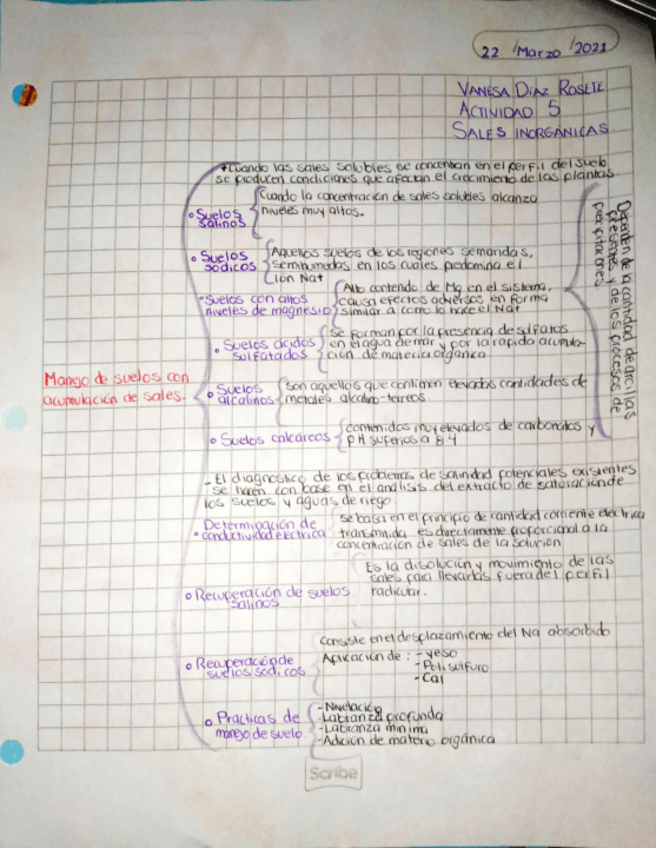 22 / Marzo / 2021
VANESA DÍAZ ROSETE
ACTIVIDAD 5
SALES INORGÁNICAS
Cuando las sales solubles se concentran en el perfil del suelo
se producen condiciones que afectan el crecimiento de las plantas.
Suelos
salinos
Cuando la concentración de sales solubles alcanza
niveles muy altos.
Suelos
sódicos
Aquellos suelos de las regiones semiaridas,
semihumedas en los cuales predomina el
ión Na+
Suelos con altos
niveles de magnesio
Alto contenido de Mg en el sistema,
causa efectos adversos en forma
similar a como lo hace el Na+
Suelos ácidos
sulfatados
se forman por la presencia de sulfatos
en el agua de mar y por la rapida acumula-
ción de materia orgánica.
Manejo de suelos con
acumulación de sales.
Suelos
alcalinos
son aquellos que contienen elevadas cantidades de
metales alcalino-terreos
Suelos calcáreos
contenidos muy elevados de carbonatos y
pH superios a 8.4
Dependen de la cantidad de arcillas
presentes y de los procesos de
precipitaciones
- El diagnostico de los problemas de salinidad potenciales existentes
se hacen con base en el análisis del extracto de saturación de
los suelos y aguas de riego
Determinación de
conductividad electrica
se basa en el principio de cantidad corriente electrica
transmitida es directamente proporcional a la
concentración de sales de la solución
Recuperación de suelos
salinos
Es la disolución y movimiento de las
sales para llevarlas fuera del perfil
radicular.
Recuperación de
suelos sódicos
consiste en el desplazamiento del Na absorbido
Aplicación de: - yeso
- Polisulfuro
- Cal
Practicas de
manejo de suelo.
- Nivelación
- Labranza profunda
- Labranza minima
- Adición de materia orgánica
Scribe